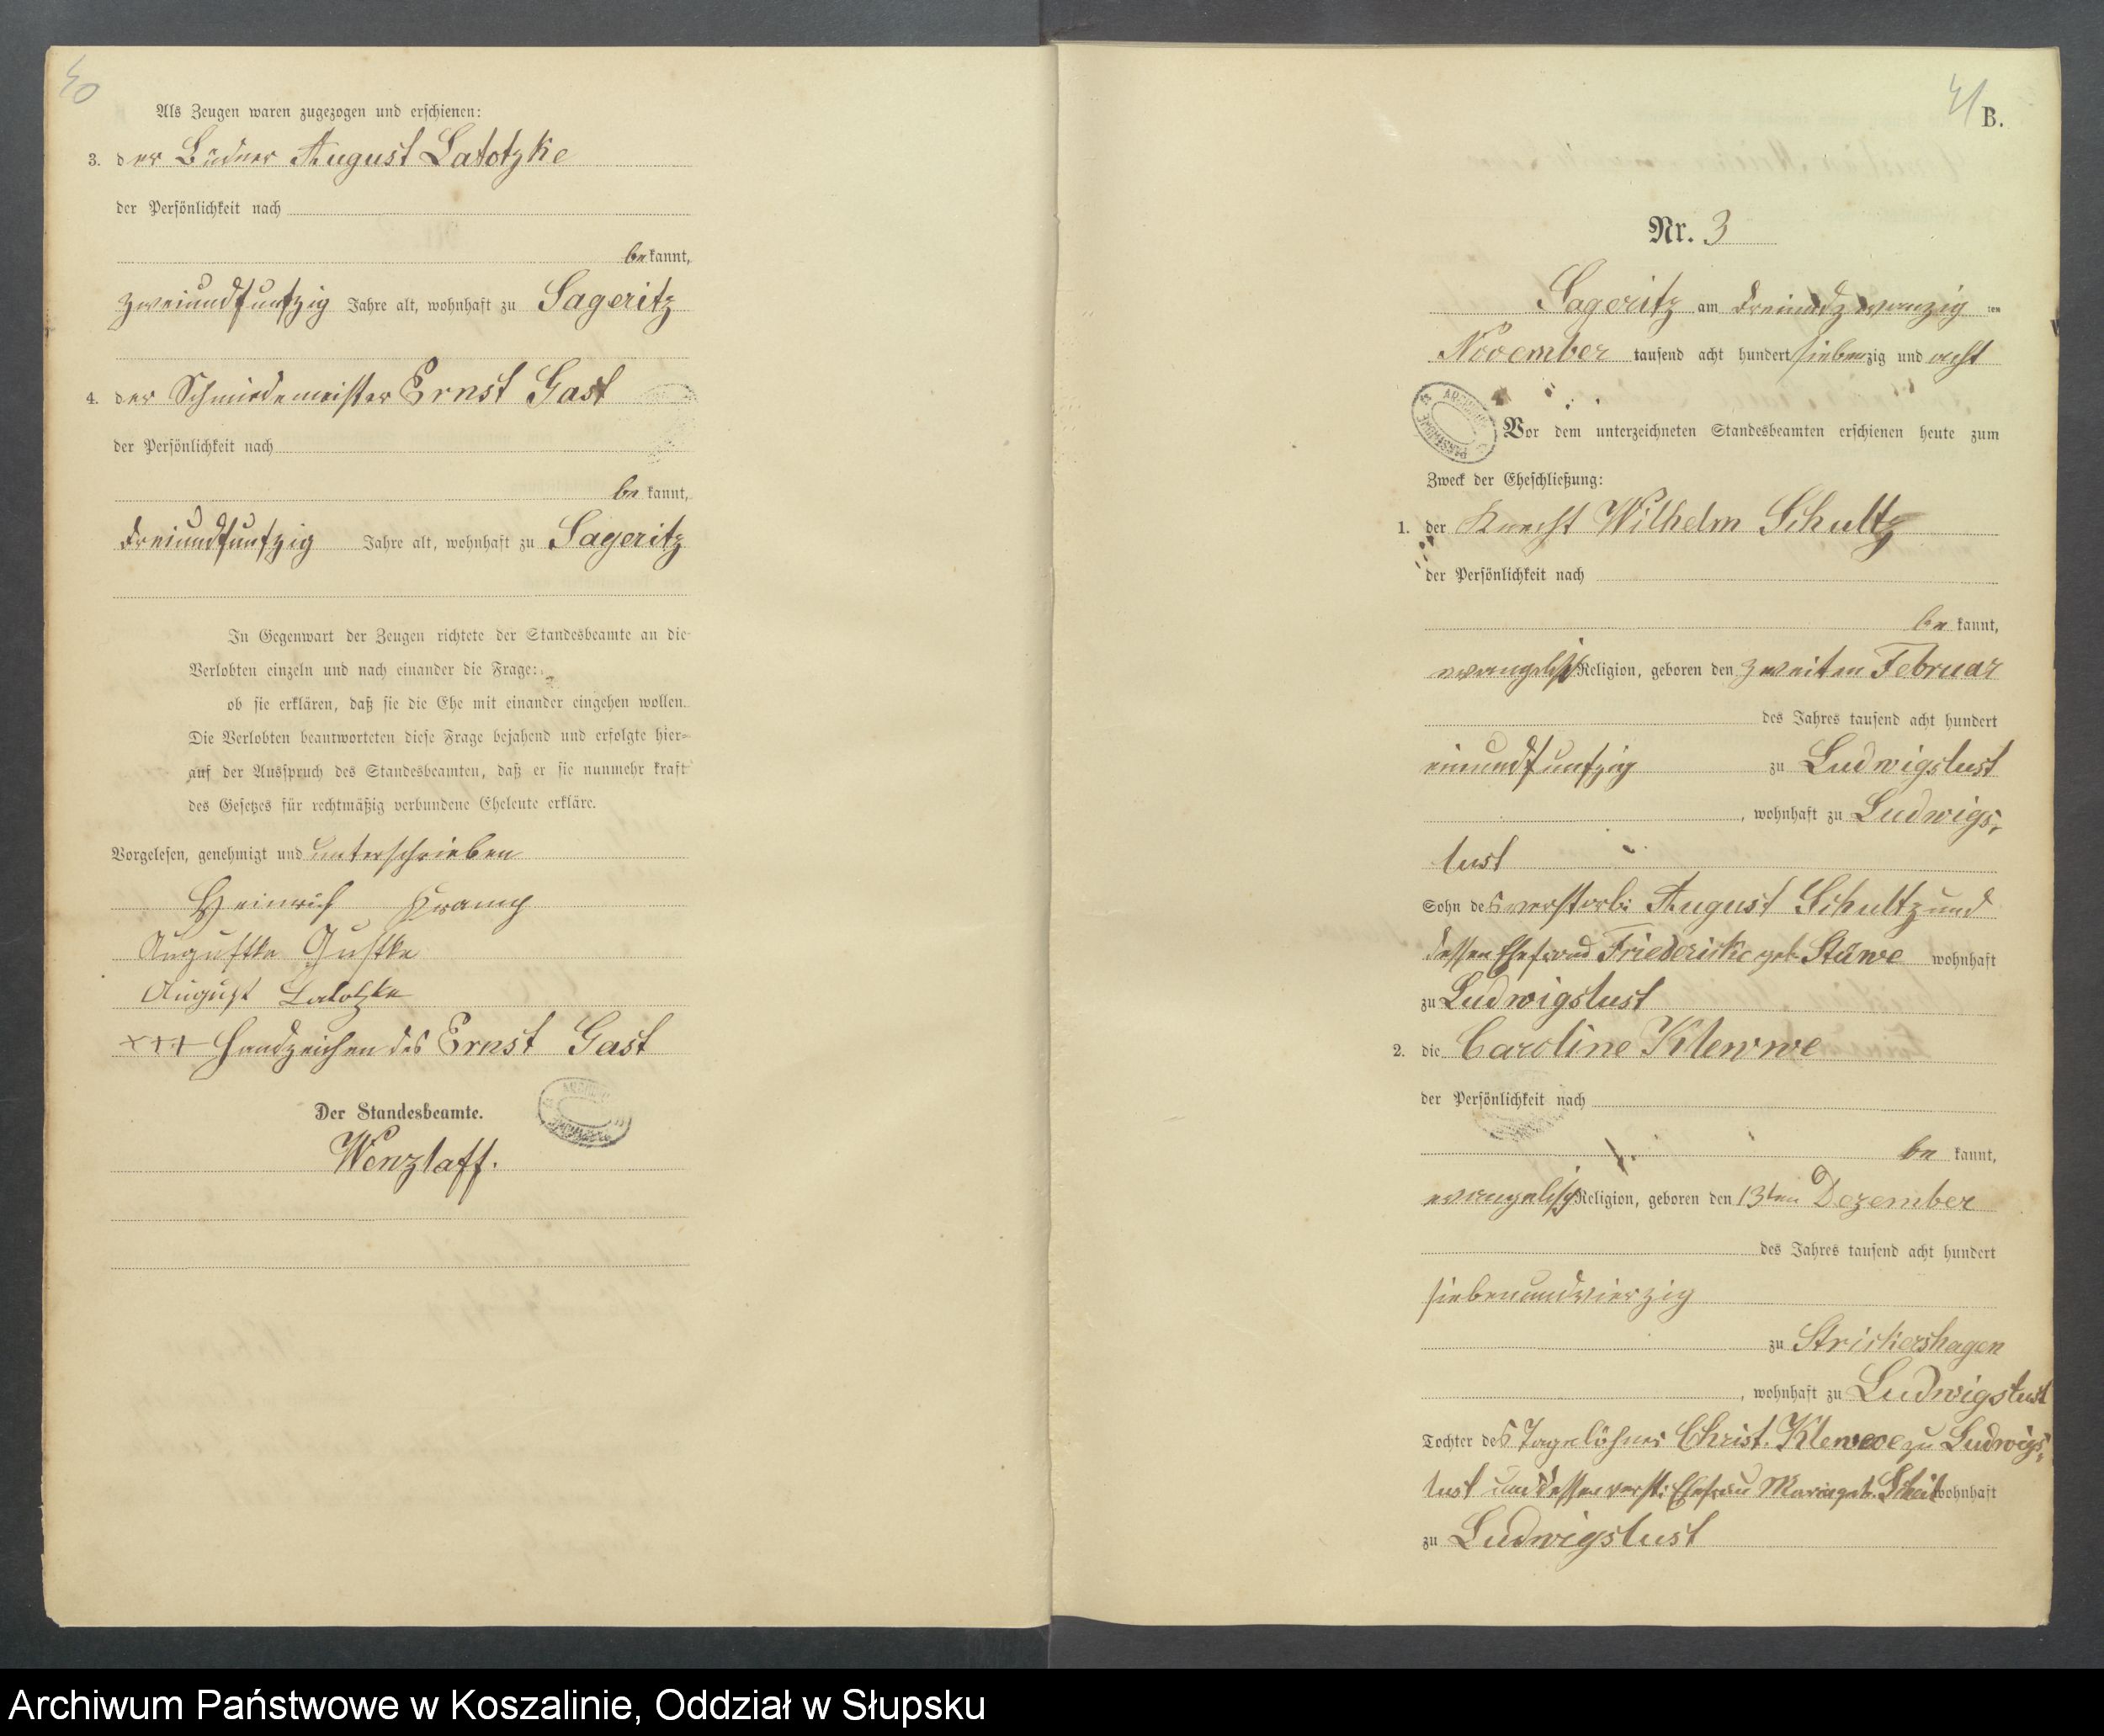 40
Als Zeugen waren zugezogen und erschienen:
3. der Büdner August Latotzke
der Persönlichkeit nach
be kannt,
zweiundfunfzig Jahre alt, wohnhaft zu Sageritz
4. der Schmiedemeister Ernst Gast
der Persönlichkeit nach
be kannt,
dreiundfunfzig Jahre alt, wohnhaft zu Sageritz
In Gegenwart der Zeugen richtete der Standesbeamte an die
Verlobten einzeln und nach einander die Frage:
ob sie erklären, daß sie die Ehe mit einander eingehen wollen.
Die Verlobten beantworteten diese Frage bejahend und erfolgte hier-
auf der Ausspruch des Standesbeamten, daß er sie nunmehr kraft
des Gesetzes für rechtmäßig verbundene Eheleute erkläre.
Vorgelesen, genehmigt und unterschrieben
Heinrich Kramp
Auguste Gustke
August Latotzke
+++ Handzeichen des Ernst Gast
Der Standesbeamte.
Wenzlaff.
41
B.
Nr. 3
Sageritz am dreiundzwanzig ten
November tausend acht hundert siebenzig und acht
Vor dem unterzeichneten Standesbeamten erschienen heute zum
Zweck der Eheschließung:
1. der Knecht Wilhelm Schultz
der Persönlichkeit nach
be kannt,
evangelisch Religion, geboren den zweiten Februar
des Jahres tausend acht hundert
einundfunfzig zu Ludwigslust
, wohnhaft zu Ludwigs-
lust
Sohn des verstorb: August Schultz und
dessen Ehefrau Friedericke geb. Stüwe wohnhaft
zu Ludwigslust
2. die Caroline Klewwe
der Persönlichkeit nach
be kannt,
evangelisch Religion, geboren den 13ten Dezember
des Jahres tausend acht hundert
siebenundvierzig
zu Strickershagen
, wohnhaft zu Ludwigslust
Tochter des Tagelöhner Christ. Klewwe zu Ludwigs-
lust und dessen verst: Ehefrau Marie geb. wohnhaft
zu Ludwigslust
Archiwum Państwowe w Koszalinie, Oddział w Słupsku